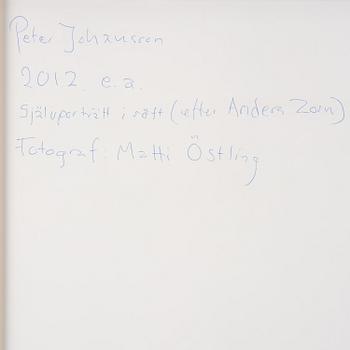 Peter Johansson
2012. e.a.
Självporträtt i rött (efter Anders Zorn)
Fotograf: Matti Östling